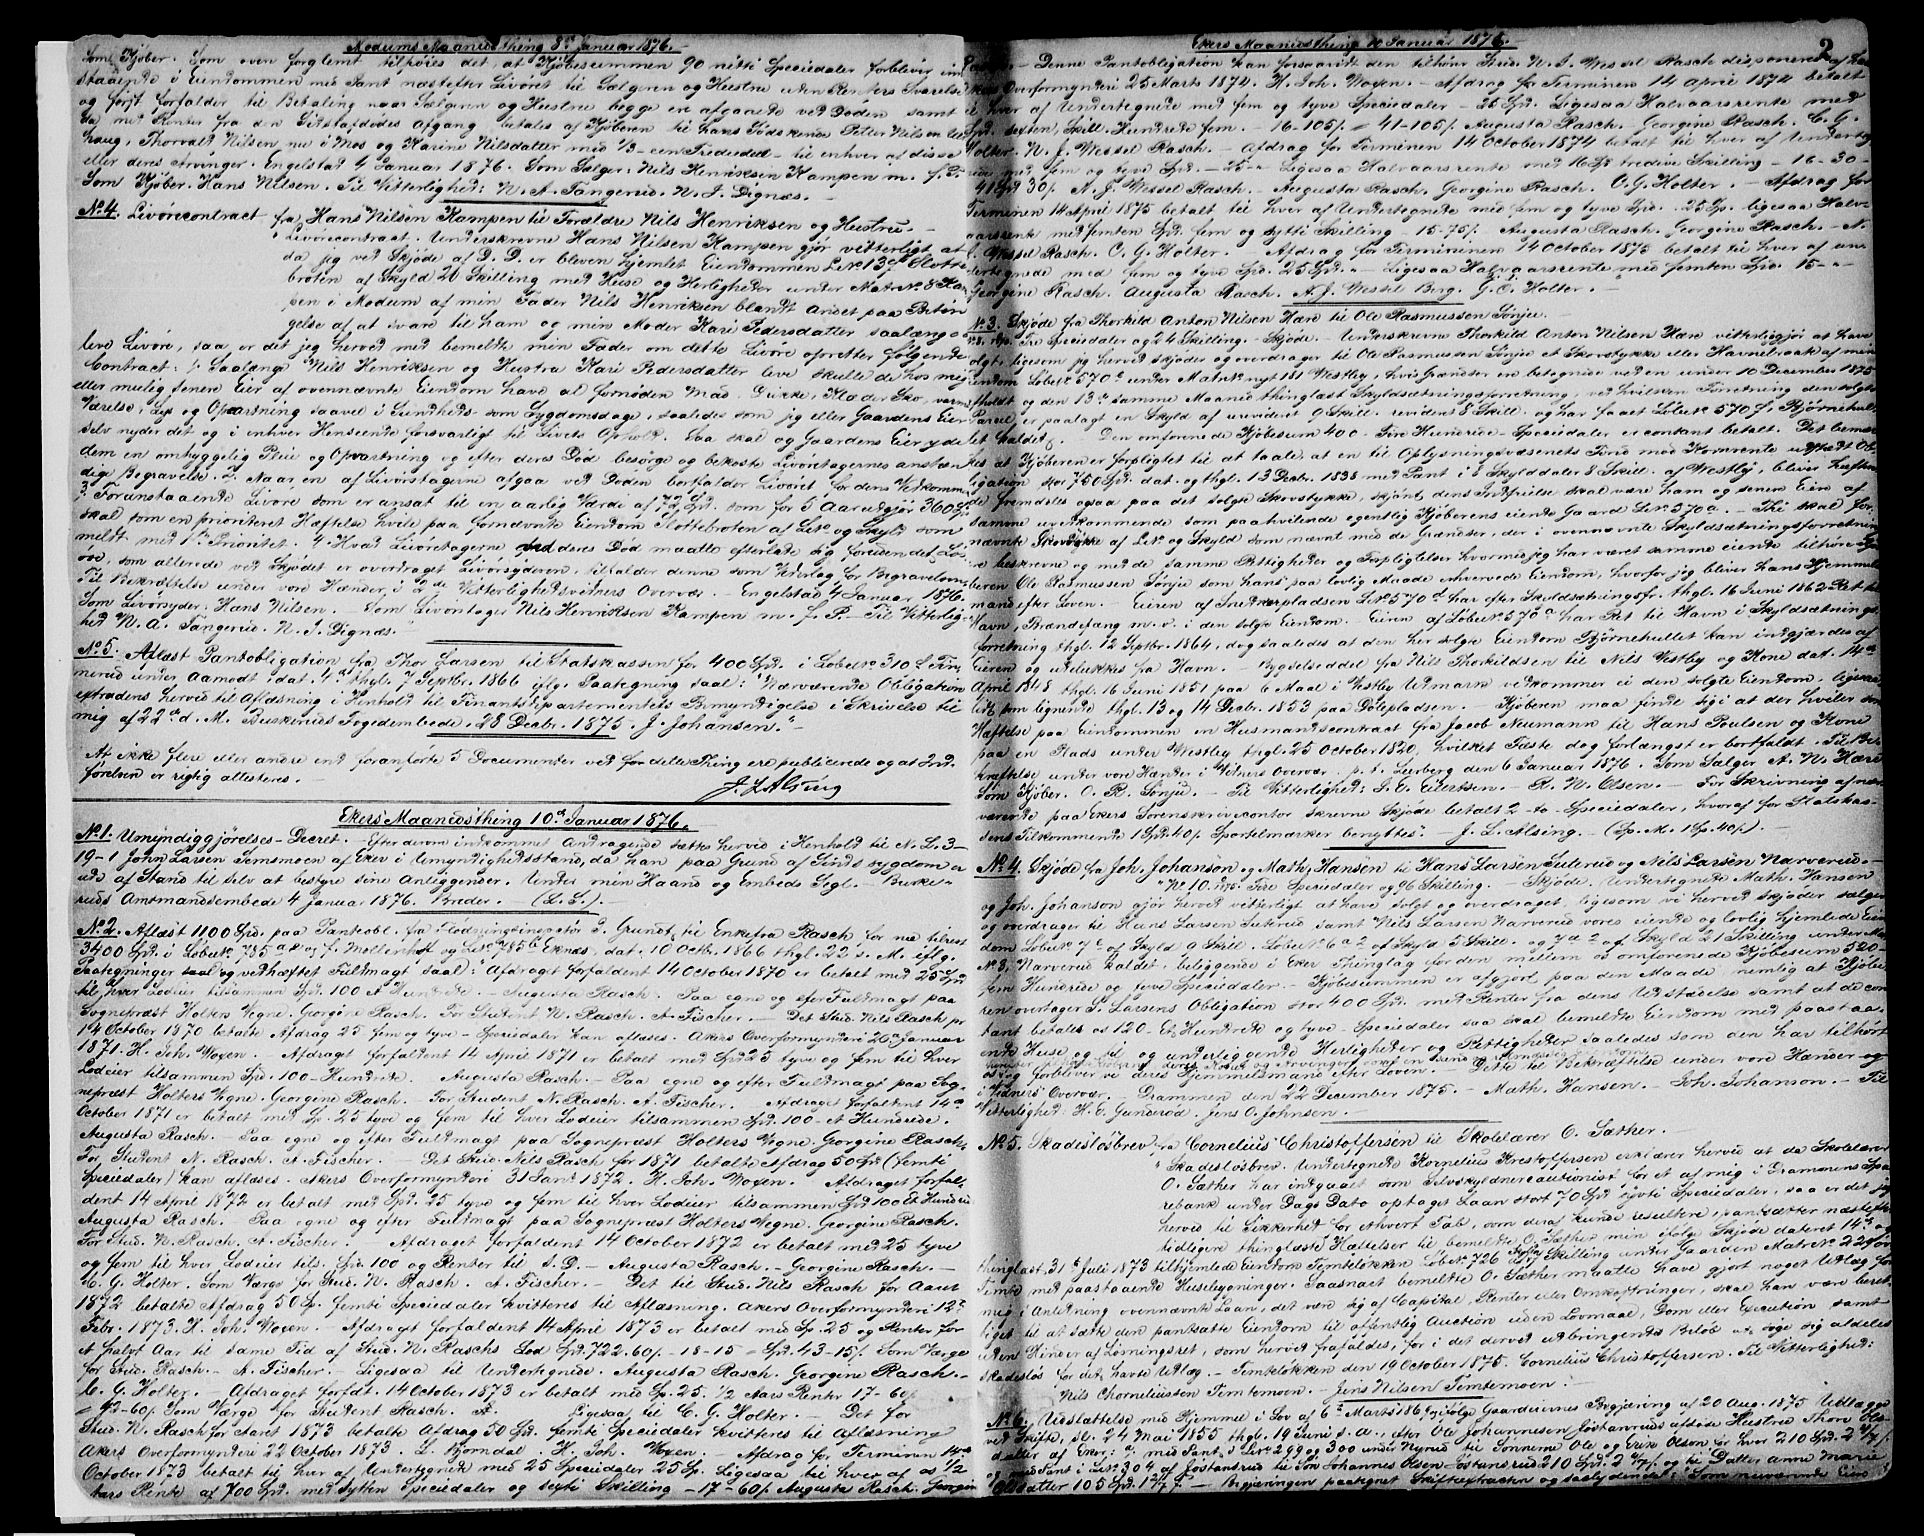 Modums Maanedsthing 8de Januar 1876.
Som Kjøber. Som oven forglemt tilføies det, at Kjøbesummen 90 nitti Speciedaler forbliver inde-
staaende i Eiendommen mod Pant næstefter Livøret til Sælgeren og Hustru uden Renters Svarelse
og først forfalder til Betaling naar Sælgeren og Hustru begge ere afgaaede ved Døden samt
da med Renter fra den Sidstafdødes Afgang betales af Kjøberen til hans Sødskende Petter Nilsen
haug, Thorvald Nilsen nu i Mos og Karine Nilsdatter med 1/3 - een Trediedel - til enhver af disse
eller deres Arvinger. Engelstad 4 Januar 1876. Som Sælger: Nils Henriksen Kampen m. f. P.
Som Kjøber. Hans Nilsen. Til Vitterlighed: N. A. Tangerud. N. J. Dignæs.
No 4. Livørecontract fra Hans Nilsen Kampen til Forældre Nils Henriksen og Hustru.
"Livørecontract. Underskrevne Hans Nilsen Kampen gjør vitterligt, at
da jeg ved Skjøde af D. D. er bleven hjemlet Eiendommen Lno 13 Slotte-
broten af Skyld 20 Skilling med Huse og Herligheder under Matr. No 8 Kam-
pen i Modum af min Fader Nils Henriksen blandt andet paa Betin-
gelse af at svare til ham og min Moder Kari Pedersdatter saalænge
leve Livøre, saa er det jeg herved med bemeldte min Fader om dette Livøre opretter følgende
Contract: 1. Saalænge Nils Henriksen og Hustru Kari Pedersdatter leve skulle de hos mig
eller mulig senere Eier af ovennævnte Eiendom have al fornøden Mad, Drikke, Klæder, Sko, varm
Værelse, Lys og Opvartning saavel i Sundheds- som Sygdomsdage, saaledes som jeg eller Gaardens Eier
selv nyder det og i enhver Henseende forsvarligt til Livets Ophold. Saa skal og Gaardens Eier yde
dem en omhyggelig Pleie og Opvartning og efter deres Død besørge og bekoste Livøretagernes anstæn-
dige Begravelse. 2. Naar en af Livøretagerne afgaa ved Døden bortfalder Livøret for dens Vedkommen
3. Foranstaaende Livøre som er ansat til en aarlig Værdi af 72 Spd. som for 5 Aar udgjør 360 Spd.
skal som en prioriteret Hæftelse hvile paa fornævnte Eiendom Slottebroten af Lno og Skyld som
meldt med 1ste Prioritet. 4. Hvad Livøretagerne ved deres Død maatte efterlade sig foruden det Løs-
øre, som allerede ved Skjødet er overdraget Livøreyderen, tilfalder denne som Vederlag for Begravelsen.
Til Bekræftelse under vore Hænder i 2de Vitterlighedsvidners Overvær. Engelstad 4 Januar 1876.
Som Livøreyder: Hans Nilsen. - Som Livøretager Nils Henriksen Kampen m. f. P. - Til Vitterlig-
hed N. A. Tangerud. N. J. Dignæs."
No 5. Aflæst Pantobligation fra Thor Larsen til Statskassen for 400 Spd. i Løbeno 310 Tin-
merud under Aamodt, dat. 4de thgl. 7 Septbr. 1866 iflg. Paategning saal: "Nærværende Obligation
extraderes herved til Aflæsning i Henhold til Finantsdepartementets Bemyndigelse i Skrivelse til
mig af 22de d. M. Buskeruds Fogedembede 28 Decbr. 1875. J. Johansen."
At ikke flere eller andre end foranførte 5 Documenter ved for dette Thing ere publicerede og at Ind-
førelsen er rigtig attesteres. -
J. L. Alsing
Ekers Maanedsthing 10de Januar 1876.
No 1. Umyndiggjørelses-Decret. - Efter derom indkommet Andragende sættes herved i Henhold til N. L. 3-
19-1 John Larsen Semsmoen af Eker i Umyndighedsstand, da han paa Grund af Sindssygdom er
ude af Stand til selv at bestyre sine Anliggender. Under min Haand og Embeds Segl. - Buske-
ruds Amtmandsembede 4 Januar 1876. Breder. - (L. S.) -
No 2. Aflæst 1100 Spd. paa Pantobl. fra Flødningsinspectør P. Grundt til Enkefru Rasch for nu tilrest
3400 Spd. i Løbeno 785 a og f. Møllenhof og Lno 785 b Eknæs, dat. 10 Octbr. 1866 thgl. 22 s. M. iflg.
Paategninger og vedhæftet Fuldmagt saal: "Afdraget forfaldent 14 October 1870 er betalt med 25 Spd.
til hver Lodeier tilsammen Spd. 100 Et Hundrede. - Augusta Rasch. - Paa egne og efter Fuldmagt paa
Sognepræst Holters Vegne. Georgine Rasch. For Student N. Rasch. A. Fischer. - Det Stud. Nils Rasch pr.
14 October 1870 betalte Afdrag 25 fem og tyve - Speciedaler kan aflæses. Akers Overformynderi 20de Januar
1871. H. Joh. Woxen. - Afdraget forfaldent 14 April 1871 er betalt med Spd. 25 tyve og fem til hver
Lodeier tilsammen Spd. 100 - Hundrede. Augusta Rasch. - Paa egne og efter Fuldmagt paa Sog-
nepræst Holters Vegne. Georgine Rasch. - For Student N. Rasch. A. Fischer. Afdraget forfaldent 14de
October 1871 er betalt med Sp. 25 tyve og fem til hver Lodeier tilsammen Spd. 100 - et Hundrede.
Augusta Rasch. - Paa egne og efter Fuldmagt paa Sognepræst Holters Vegne. Georgine Rasch.
For Student N. Rasch. A. Fischer. - Det Stud. Nils Rasch for 1871 betalte Afdrag 50 Spd. (femti
Speciedaler) kan aflæses. Akers Overformynderi 31 Jani 1872. H. Joh. Woxen. Afdraget forfal-
dent 14 April 1872 er betalt med Spd. 25 tyve og fem til hver Lodeier tilsammen Spd. 100 Et Hundrede
Augusta Rasch. - Paa egne og efter Fuldmagt paa Sognepræst Holters Vegne. Georgine Rasch.
For Stud. N. Rasch. A. Fischer. - Afdraget forfaldent 14 October 1872 er betalt med 25 tyve
og fem til hver Lodeier tils. Spd. 100 og Renter til D. D. - Augusta Rasch. - Georgine Rasch. -
C. G. Holter. Som Værge for Stud. N. Rasch. A. Fischer. - Det til Stud. Nils Rasch for Aaret
1872 betalte Afdrag 50 Sp. femti Speciedaler kvitteres til Aflæsning. Akers Overformynderi 12te
Febr. 1873. H. Joh. Woxen. - Afdraget forfaldent 14 April 1873 er betalt med Sp. 25 og Renter for
et halvt Aar til same Tid af Stud. N. Raschs Lod Spd. 722. 60 /. - 18-15 = Spd. 43-15 /. Som Værge
for Stud. Rasch. - A. Fischer. - Ligesaa til Undertegnede. Augusta Rasch. Georgine Rasch. -
C. G. Holter. - Afdraget forfdt. 14 October 1873 er betalt med Sp. 25. 1/2 Aars Renter 17-60 /.
= 42-60 /. Som Værge for Student Rasch. A. Ligesaa til C. G. Holter. - Det for
Stud. N. Rasch for Aaret 1873 betalte Afdrag 50 Spd. femti Speciedaler kvitteres til Aflæsning
Akers Overformynderi 22 October 1873. L. Bjørndal. H. Joh. Woxen. - Afdrag for Terminen 14de
October 1873 betalt til hver af Undertegnede med 25 Speciedaler 25 Sp. Ligesaa til hver af os 1/2
Aars Rente af 700 Spd. med sytten Speciedaler og sexti Skilling - 17-60 /. Augusta Rasch. Georgine
Ekers Maanedsthing 10 Januar 1876.
2
Rasch. - Denne Pantobligation kan forsaavidt den tilhører Stud. N. J. Wessel Rasch disponeres af ham
Akers Overformynderi 25 Marts 1874. H. Joh. Woxen. - Afdrag for Terminen 14 April 1874 betalt
til hver af Undertegnede med fem og tyve Speciedaler - 25 Spd. Ligesaa Halvaarsrente med
Spd. sexten, Skill. Hundrede fem. - 16-105 /. = 41-105 /. Augusta Rasch. - Georgine Rasch. C. G.
Holter. - N. J. Wessel Rasch. - Afdrag for Terminen 14 October 1874 betalt til hver af Underteg-
nede med fem og tyve Spd. - 25 - Ligesaa Halvaarsrente med 16 Spd. tredive Skilling - 16-30 -
41 Spd. 30 /. N. J. Wessel Rasch. - Augusta Rasch. Georgine Rasch. C. G. Holter. - Afdrag for
Terminen 14 April 1875 betalt til hver af Undertegnede med fem og tyve Spd. 25 Sp. ligesaa Halv-
aarsrente med femten Spd. fem og sytti Skilling - 15-75 /. Augusta Rasch. Georgine Rasch. - N.
J. Wessel Rasch. C. G. Holter. - Afdrag for Terminen 14 October 1875 betalt til hver af un-
dertegnede med fem og tyve Spd. 25 Spd. - Ligesaa Halvaarsrente med femten Spd. 15 -
Georgine Rasch. Augusta Rasch. N. J. Wessel Berg. G. C. Holter. -
No 3. Skjøde fra Thorkild Anton Nilsen Hære til Ole Rasmussen Sønju.
Fire Speciedaler og 24 Skilling. - Skjøde. - Underskrevne Thorkild Anton Nilsen Hære vitterliggjør at have
solgt, ligesom jeg herved skjøder og overdrager til Ole Rasmussen Sønju et Skovstykke eller Havnetraak af min
Eiendom Løbeno 570 a under Matr. No nyt 181 Westby, hvis Grændser ere betegnede ved en under 10 December 1875
afholdt og den 13de samme Maaned thinglæst Skyldsætningsforretning, ved hvilken Forretning den solgte
Parcel er paalagt en Skyld af urevideret 9 Skill. revideret 8 Skill. og har faaet Løbeno 570 f, Bjørnehul-
let kaldet. Den omforenede Kjøbesum 400 - Fire Hundrede - Speciedaler er contant betalt. Det bemær-
kes at Kjøberen er forpligtet til at taale at en til Oplysningsvæsenets Fond med Kornrente udstedt Ob-
ligation stor 750 Spd. dat. og thgl. 13 Decbr. 1838 med Pant i 8 Skylddaler 8 Skill. af Westby, bliver heften-
de fremdeles ogsaa paa det solgte Skovstykke, skjønt dens Indfrielse skal være ham og senere Eiere af
samme uvedkommende som paahvilende egentlig Kjøberens eiende Gaard Lno 570 a. - Thi skal for-
nævnte Skovstykke af Lno og Skyld som nævnt med de Grændser, der i ovennævnte Skyldsætningsforretning
ere beskrevne og med de samme Rettigheder og Forpligtelser hvormed jeg har været samme eiende tilhøre Kjø-
beren Ole Rasmussen Sønju som hans paa lovlig Maade erhvervede Eiendom, hvorfor jeg bliver hans Hjemmels-
mand efter Loven. Eieren af Snedkerpladsen Lno 570 d har efter Skyldsætningsf. thgl. 16 Juni 1862 Ret til
Havn, Brændefang m. v. i den solgte Eiendom. Eieren af Løbeno 570 a har Ret til Havn i Skyldsætnings-
forretning thgl. 12 Septbr. 1864, dog saaledes at den her solgte Eiendom Bjørnehullet kan indgjærdes af
Eieren og udelukkes fra Havn. Bygselseddel fra Nils Thorkildsen til Nils Westby og Kone dat. 14de
April 1848 thgl. 16 Juni 1851 paa 6 Maal i Westby Udmark vedkommer ei den solgte Eiendom, ligesaa
lidt som lignende thgl. 13 og 14 Decbr. 1853 paa Dølepladsen. Kjøberen maa finde sig i at der hviler som
Hæftelse paa Eiendommen en Husmandscontract fra Jacob Neumann til Hans Poulsen og Kone
paa en Plads under Westby thgl. 25 October 1820, hvilket Fæste dog forlængst er bortfaldt. Til Be-
kræftelse under vore Hænder i Vidners Overvær. p. t. Leerberg den 6 Januar 1876. Som Sælger A. N. Hære
Som Kjøber. O. R. Sønju. - Til Vitterlighed: S. E. Eilertsen. - R. N. Olsen. - For Skrivning af nær-
værende paa Ekers Sorenskrivercontor skrevne Skjøde betalt 2 - to - Speciedaler, hvoraf for Statskas-
sens Tilkommende 1 Spd. 40 /. Sportelmarker benyttes." J. L. Alsing. - (Sp. M. 1 Sp. 40 /.) -
No 4. Skjøde fra Joh. Johanson og Math. Hansen til Hans Larsen Suterud og Nils Larsen Narverud. -
"No 10. Fire Speciedaler og 96 Skilling. - Skjøde. Undertegnede Math. Hansen
og Joh. Johanson gjør herved vitterligt at have solgt og overdraget, ligesom vi herved skjøder sælger
og overdrager til Hans Larsen Suterud samt Nils Larsen Narverud vores eiende og lovlig hjemlede Eien-
dom Løbeno 7 c af Skyld 9 Skill. Løbeno 6 a 2 af Skyld 3 Skill. og 7 a 2 af Skyld 21 Skilling under Matr.
No 3, Narverud kaldet, beliggende i Eker Thinglag for den mellem os omforenede Kjøbesum 520 -
fem Hundrede og tyve Speciedaler. - Kjøbesummen er afgjort paa den Maade nemlig at Kjøbe-
ren overtager P. Larsens Obligation stor 400 Spd. med Renter fra dens Udstædelse samt at de con-
tant betales os 120 - Et Hundrede og tyve - Speciedaler saa skal bemeldte Eiendom med paastaa-
ende Huse og til og underliggende Herligheder og Rettigheder saaledes som den har tilhørt
os og forbliver vi deres Hjemmelsmænd efter Loven. - Dette til Bekræftelse under vore Hænder og
i Vidners Overvær. - Drammen den 22 December 1875. - Math. Hansen. - Joh. Johanson. - Til
Vitterlighed: H. E. Gunderød. Jens O. Johnsen. -
No 5. Skadesløsbrev fra Cornelius Christoffersen til Skolelærer O. Sæther. -
"Skadesløsbrev. Undertegnede Kornelius Krestoffersen erklærer herved at da Skolelærer
O. Sæther har indgaaet som Selvskyldnercautionist for et af mig i Drammens Spa-
rebank under Dags Dato optaget Laan stort 70 Spd. sytti Speciedaler, saa er det jeg
herved til Sikkerhed for ethvert Tab, som deraf kunde resultere, pantsætter næstefter
tidligere thinglæste Hæftelser til bemeldte O. Sæther min ifølge Skjøde dateret 14de og
thinglæst 31te Juli 1873 tilhjemlede Eiendom Temteløkken Løbeno 726 Skilling under Gaarden Matr. No 22 søndre
Temte med paastaaende Husebygninger. Saasnart bemeldte O. Sæther maatte have gjort noget Udlæg for
mig i Anledning ovennævnte Laan, det være sig af Capital, Renter eller Omkostninger, skal han være beret-
tiget til at sætte den pantsatte Eiendom til offentlig Auction uden Lovmaal, Dom eller Execution samt
uden Hinder af Løsningsret, som herved frafaldes, for i det derved udbringende Beløb at søge sig aldeles
skadesløs for det havte Udlæg. - Temteløkken den 19 October 1875. Cornelius Christoffersen. Til Vitterlighed:
Nils Chorneliussen Temtemoen. - Jens Nilsen Temtemoen. -
No 6. Udslettelse med Hjemmel i Lov af 6te Marts 1869 ifølge Gaardeiernes Begjæring af 20 Aug. 1875 Udlægges
ved Skifte, sl. 24 Mai 1855 thgl. 19 Juni s. a. efter Ole Johannesen Jostansruds afdøde Hustru Thore Ols-
datter af Eker: a, med Pant i Lno 299 og 300 under Nyrud til Sønnerne Ole og Even Olsen for hver 210 Spd. 2
og med Pant i Lno 304 af Jostansrud til Søn Johannes Olsen Jostansrud 210 Spd. 2 og til Datter Anne Marie
Olsdatter 105 Spd. 1 - Begjæringen paategnet Skifteextracten og saalydende: "Som nuværende Eiere